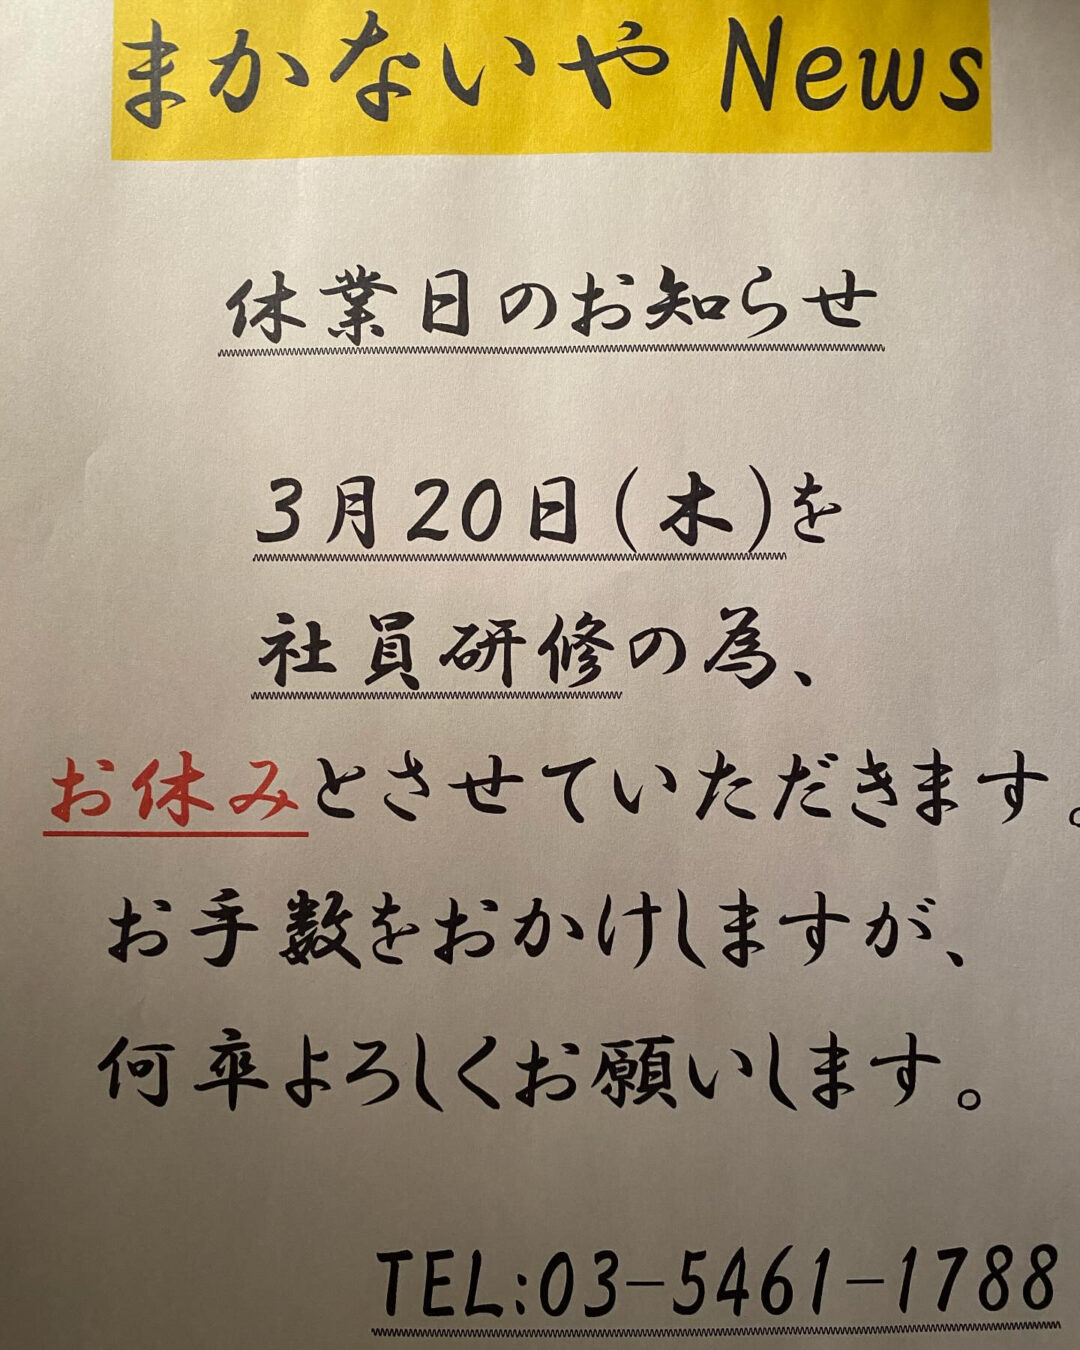 まかないや News
休業日のお知らせ
3月20日(木)を
社員研修の為、
お休みとさせていただきます。
お手数をおかけしますが、
何卒よろしくお願いします。
TEL:03-5461-1788